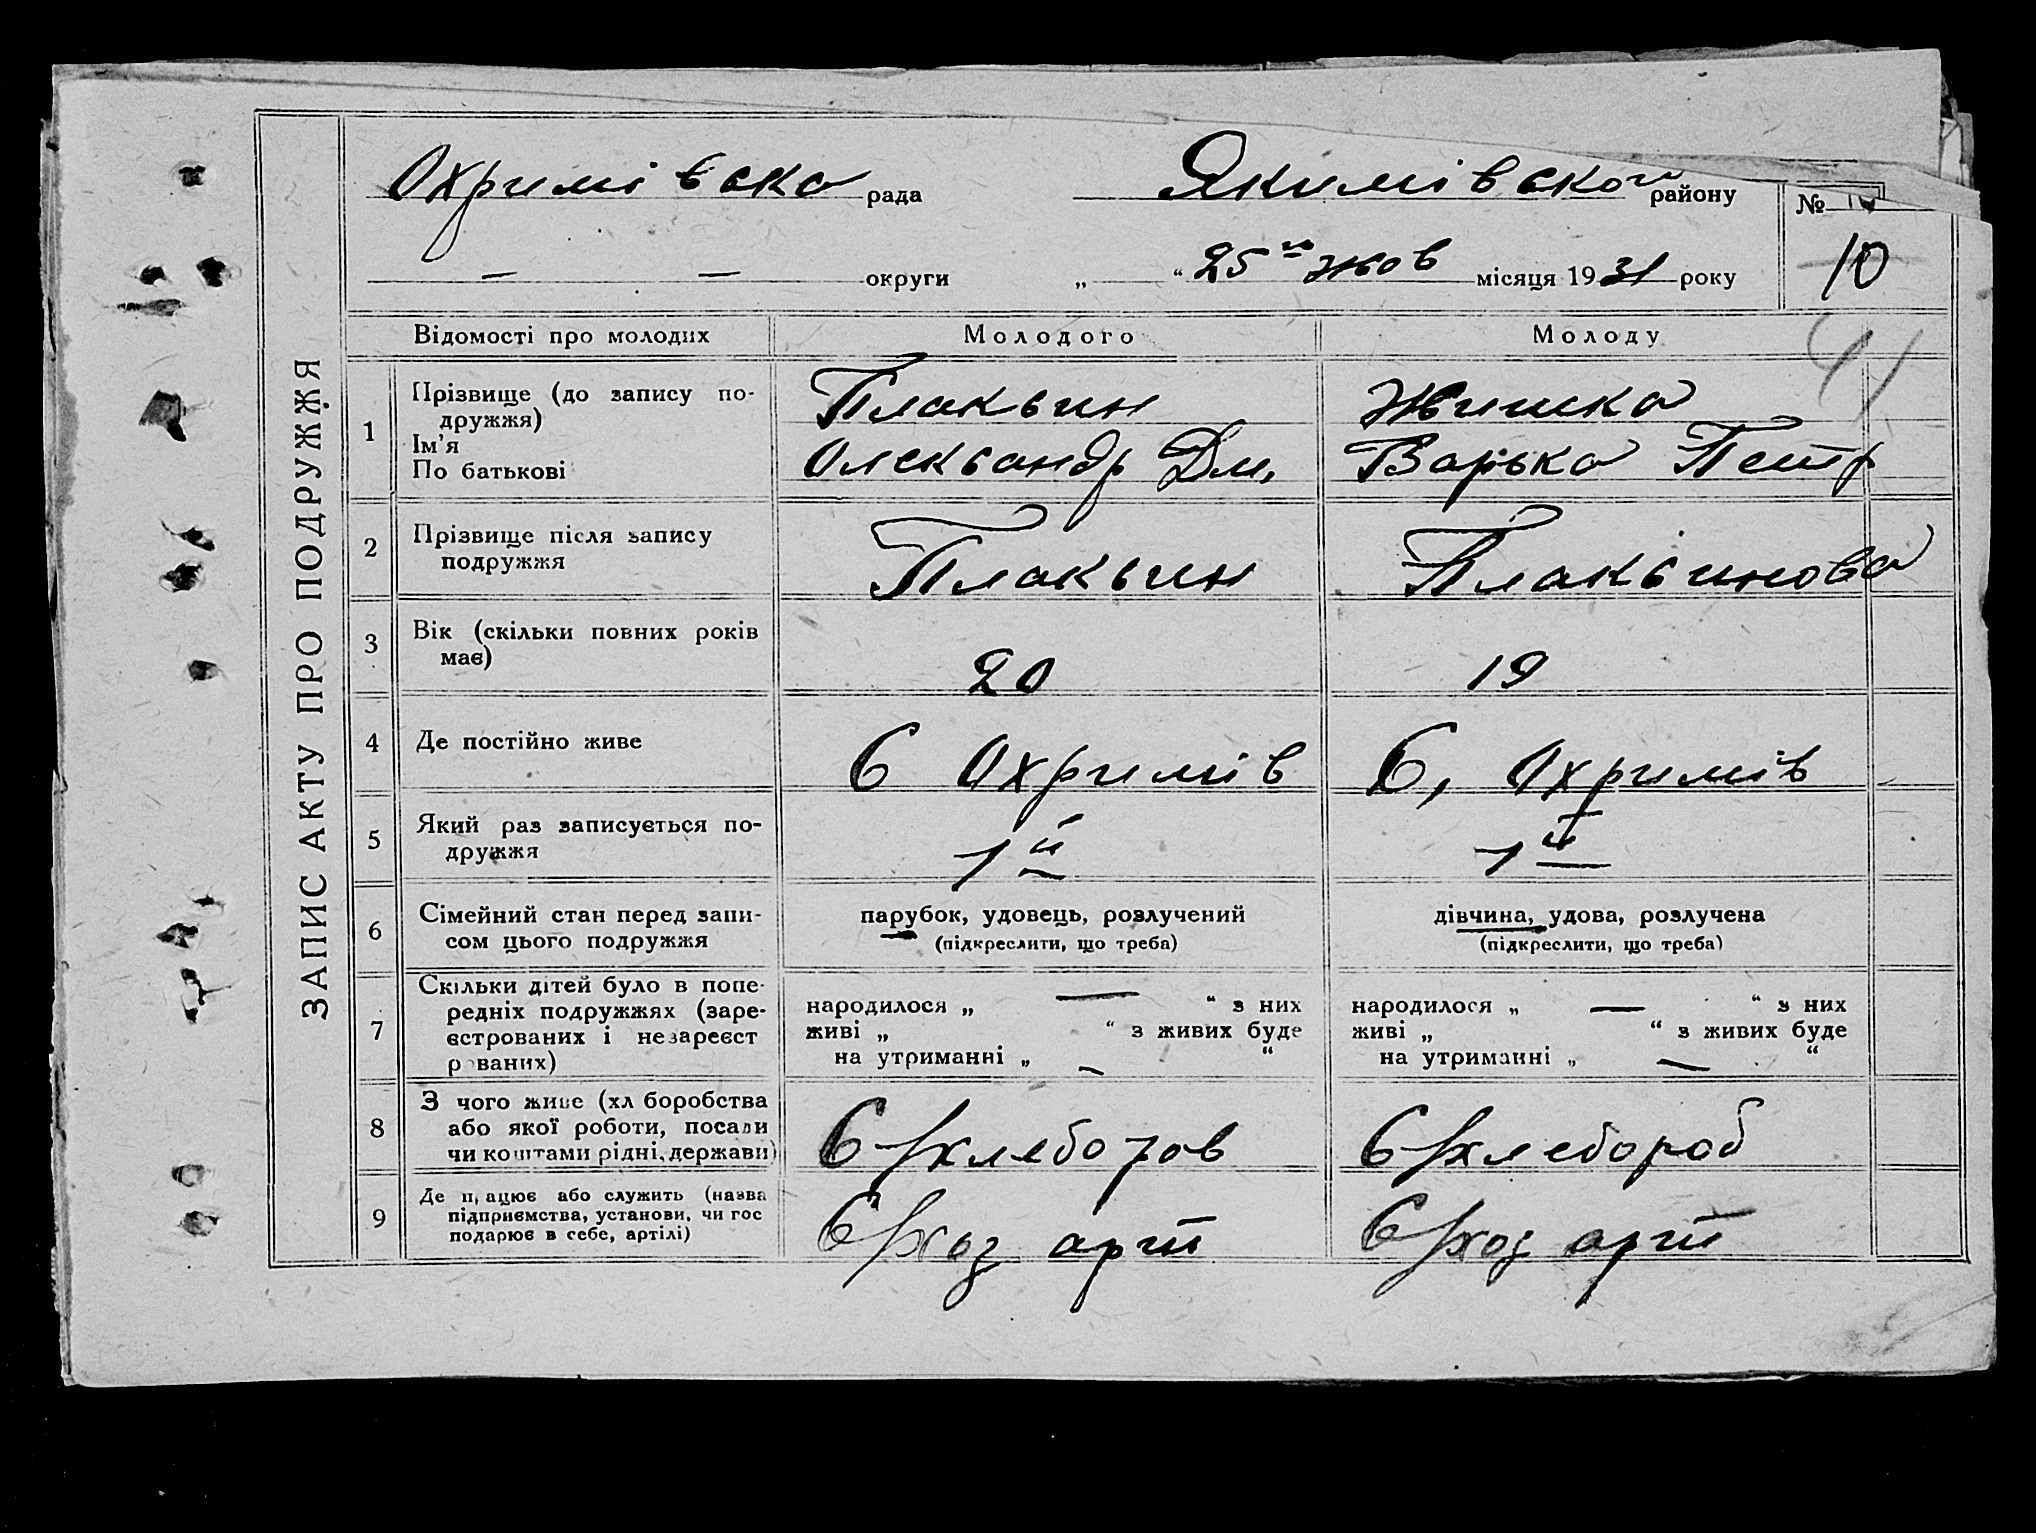 ЗАПИС АКТУ ПРО ПОДРУЖЖЯ
Охримівска рада Якимівской району № 10
— — округи „ “ 25го жов місяця 1931 року 10
Відомості про молодих Молодого Молоду 41
1 Прізвище (до запису по-
дружжя)
Ім'я
По батькові
Плаксин
Олександр Дм.
Жишка
Варька Петр
2 Прізвище після запису
подружжя
Плаксин Плаксинова
3 Вік (скільки повних років
має)
20 19
4 Де постійно живе С Охримів С, Охримів
5 Який раз записується по-
дружжя
1й 1й
6 Сімейний стан перед запи-
сом цього подружжя
парубок, удовець, розлучений
(підкреслити, що треба)
дівчина, удова, розлучена
(підкреслити, що треба)
7 Скільки дітей було в попе-
редніх подружжях (заре-
єстрованих і незареєст
рованих)
народилося „ — “ з них
живі „ “ з живих буде
на утриманні „ — “
народилося „ — “ з них
живі „ “ з живих буде
на утриманні „ — “
8 З чого живе (хліборобства
або якої роботи, посади
чи коштами рідні, держави)
С/хлеборов С/хлебороб
9 Де працює або служить (назва
підприємства, установи, чи гос
подарює в себе, артілі)
С/хоз арт С/хоз арт